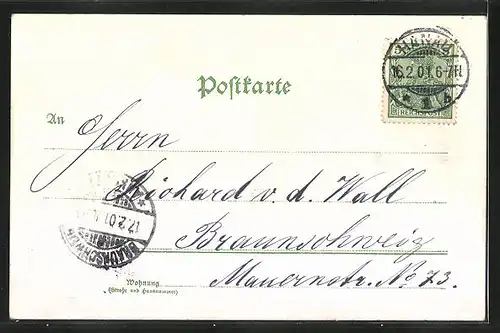 HANAU
16.2.01.6-7N.
* 1 A
REICHSPOST
Postkarte
An
Herrn
Richard v. d. Wall
Braunschweig
Mauernstr. No 73.
17.2.01.
BRAUNSCHWEIG
Wohnung
(Straße und Hausnummer)